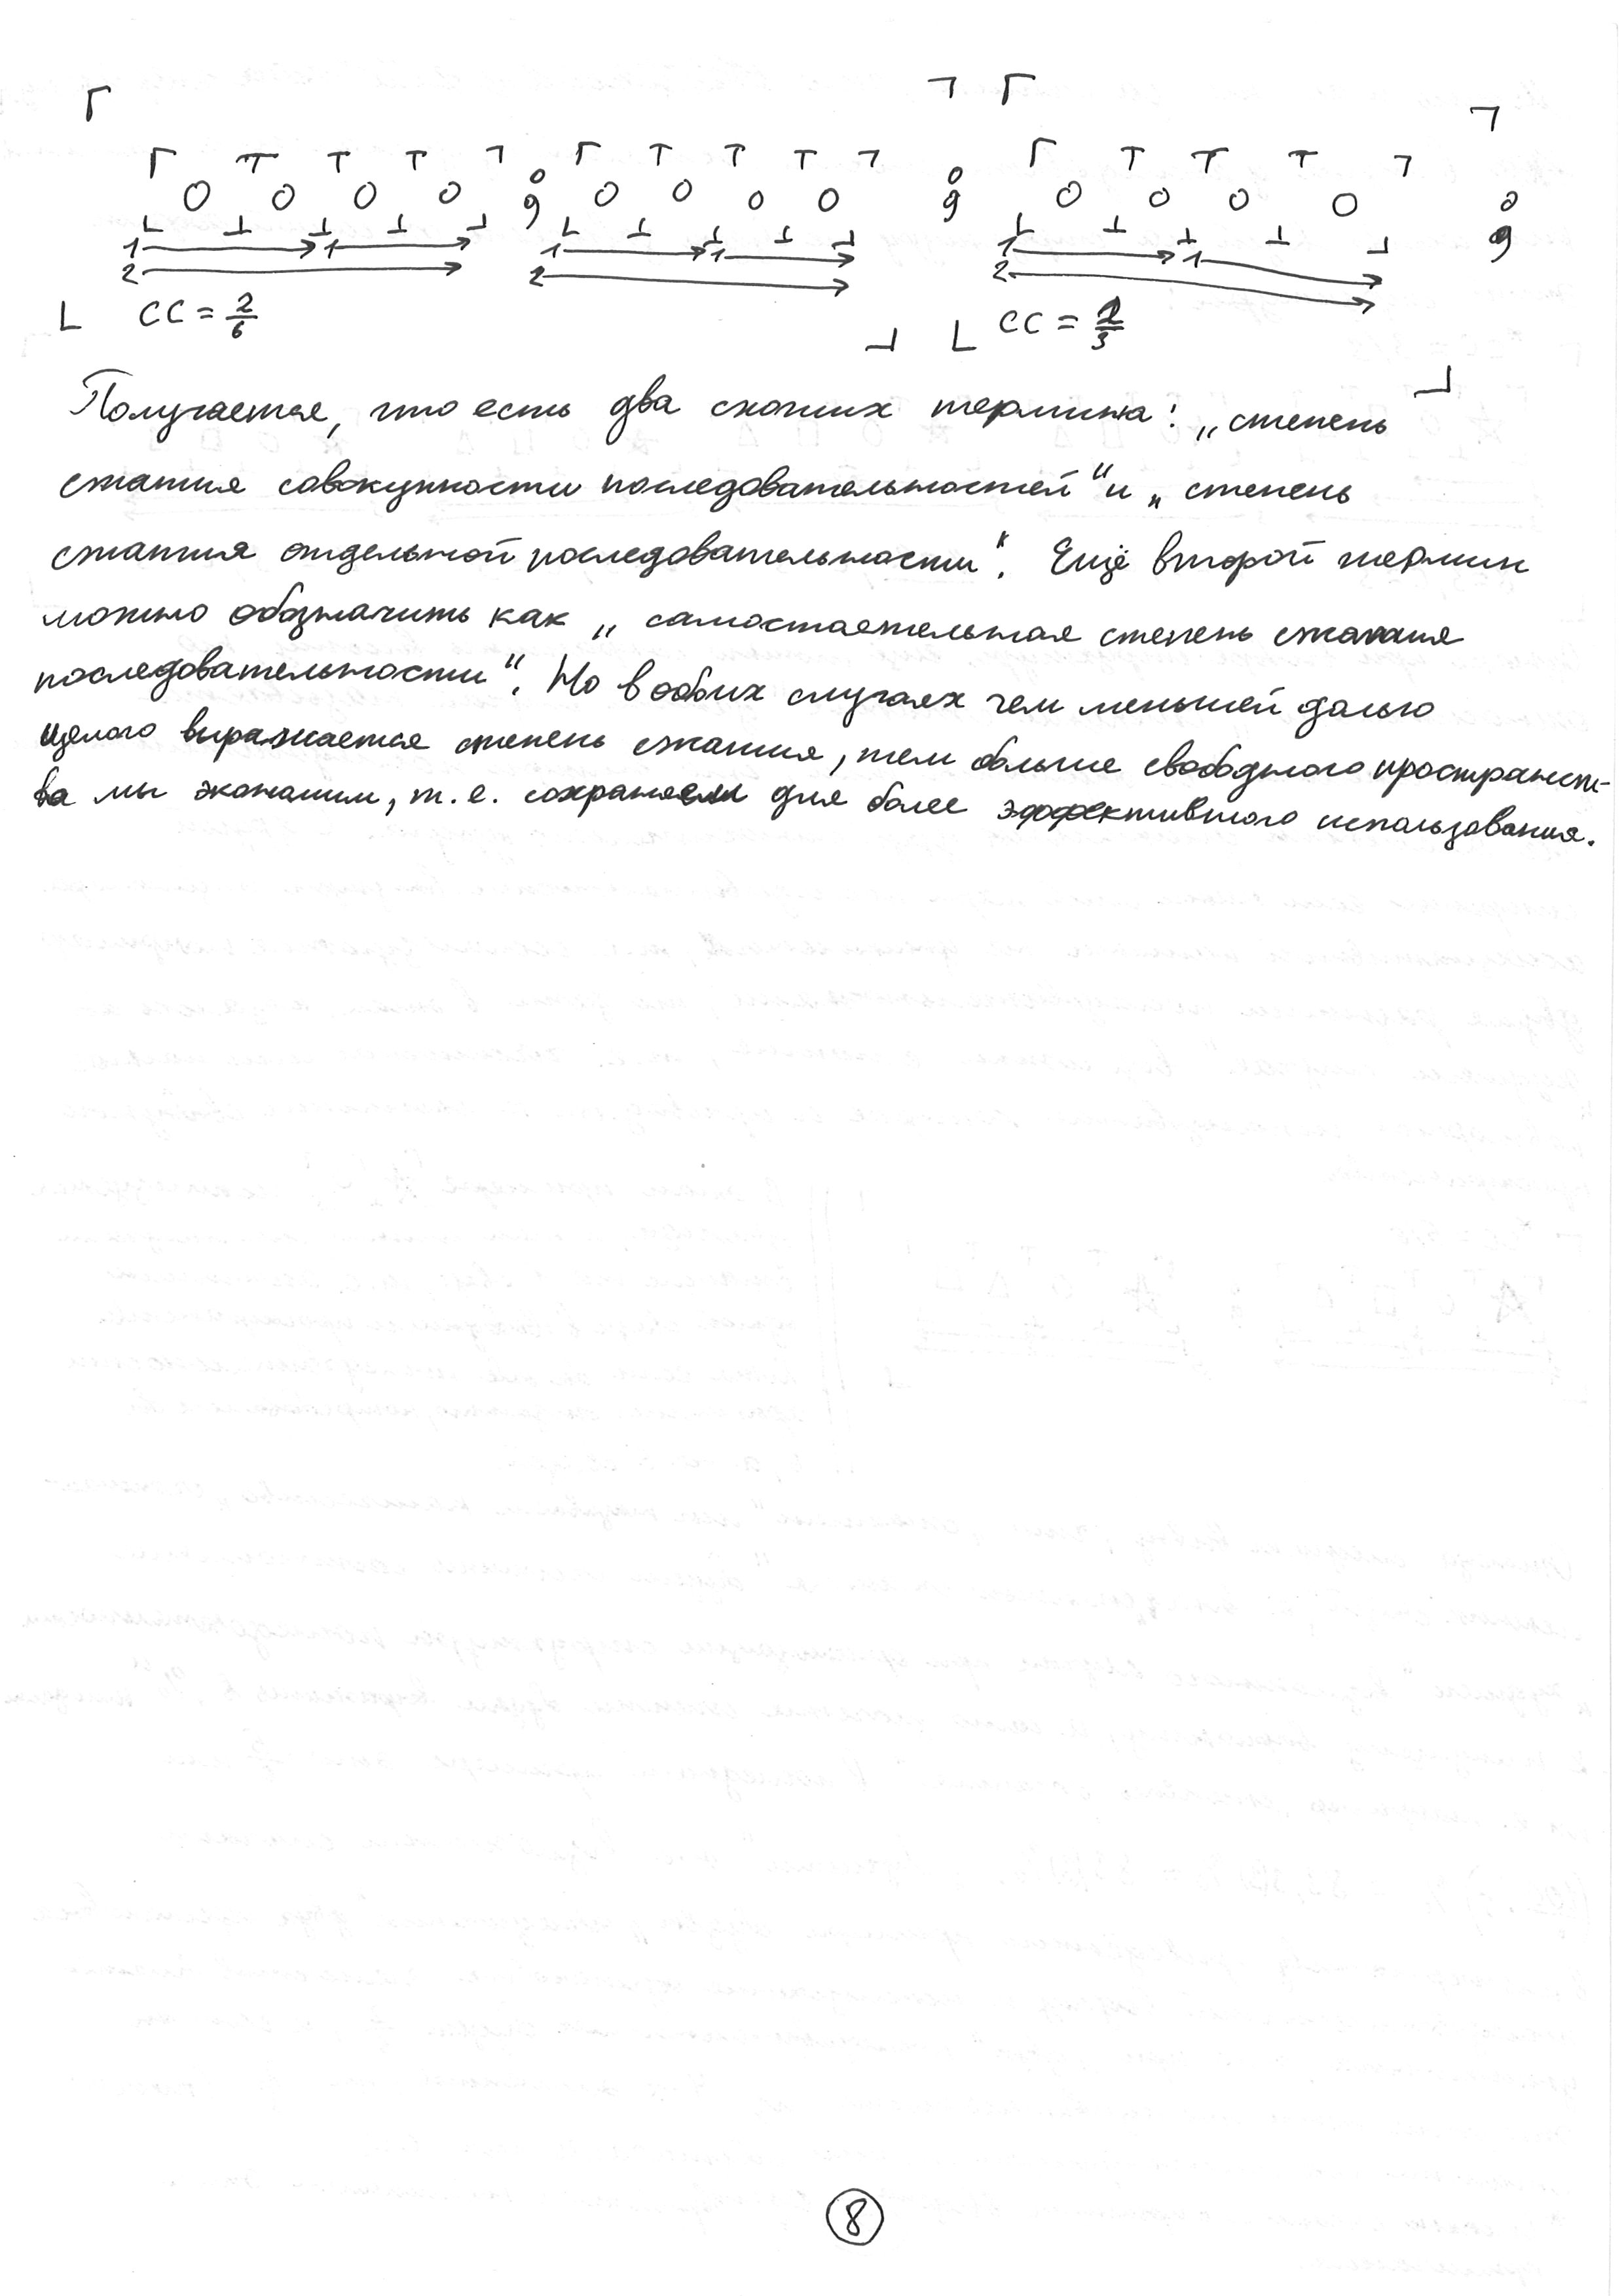 Г ㄱ Г ㄱ
Г Т Т Т ㄱ Г Т Т Т ㄱ Г Т Т Т ㄱ
О О О О 9 О О О О 9 О О О О 9
L ⊥ ⊥ ⊥ ┘ L ⊥ ⊥ ⊥ ┘ L ⊥ ⊥ ⊥ ┘
1 → 1 → 1 → 1 → 1 → 1 →
2 → 2 → 2 →
L СС = 2/6 ┘ L СС = /3 ┘
Получается, что есть два схожих термина: „степень
сжатия совокупности последовательностей“ и „степень
сжатия отдельной последовательности“. Ещё второй термин
можно обозначить как „самостоятельная степень сжатия
последовательности“. Но в обоих случаях чем меньшей долью
целого выражается степень сжатия, тем больше свободного пространст-
ва мы экономим, т.е. сохраняем для более эффективного использования.
8